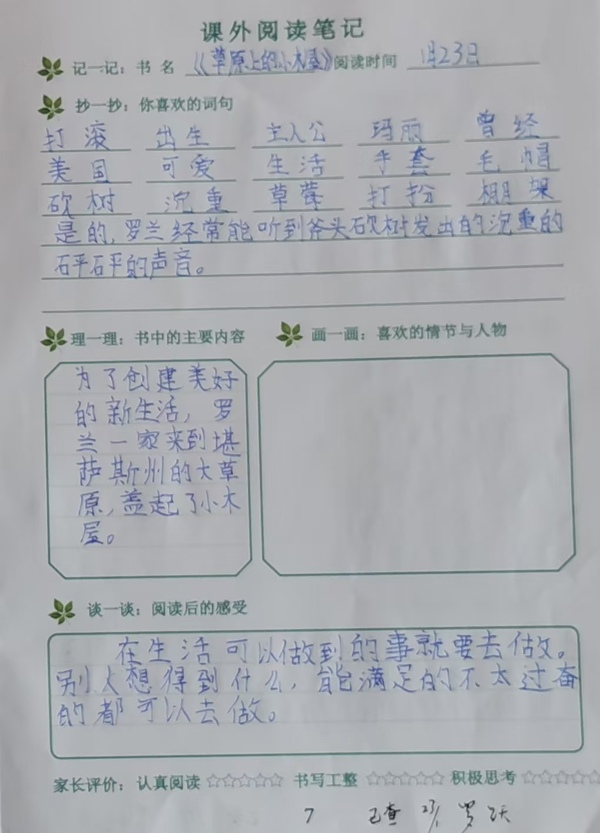 课外阅读笔记
记一记：书名 《草原上的小木屋》 阅读时间 1月23日
抄一抄：你喜欢的词句
打滚 出生 主人公 玛丽 曾经
美国 可爱 生活 手套 毛帽
砍树 沉重 草莓 打扮 棚架
是的，罗兰经常能听到斧头砍树发出的沉重的
砰砰的声音。
理一理：书中的主要内容
画一画：喜欢的情节与人物
为了创建美好
的新生活，罗
兰一家来到堪
萨斯州的大草
原，盖起了小木
屋。
谈一谈：阅读后的感受
在生活可以做到的事就要去做。
别人想得到什么，能满足的不太过奋
的都可以去做。
家长评价：认真阅读☆☆☆☆☆ 书写工整☆☆☆☆☆ 积极思考☆☆☆☆☆
7 已查 23/1 罗